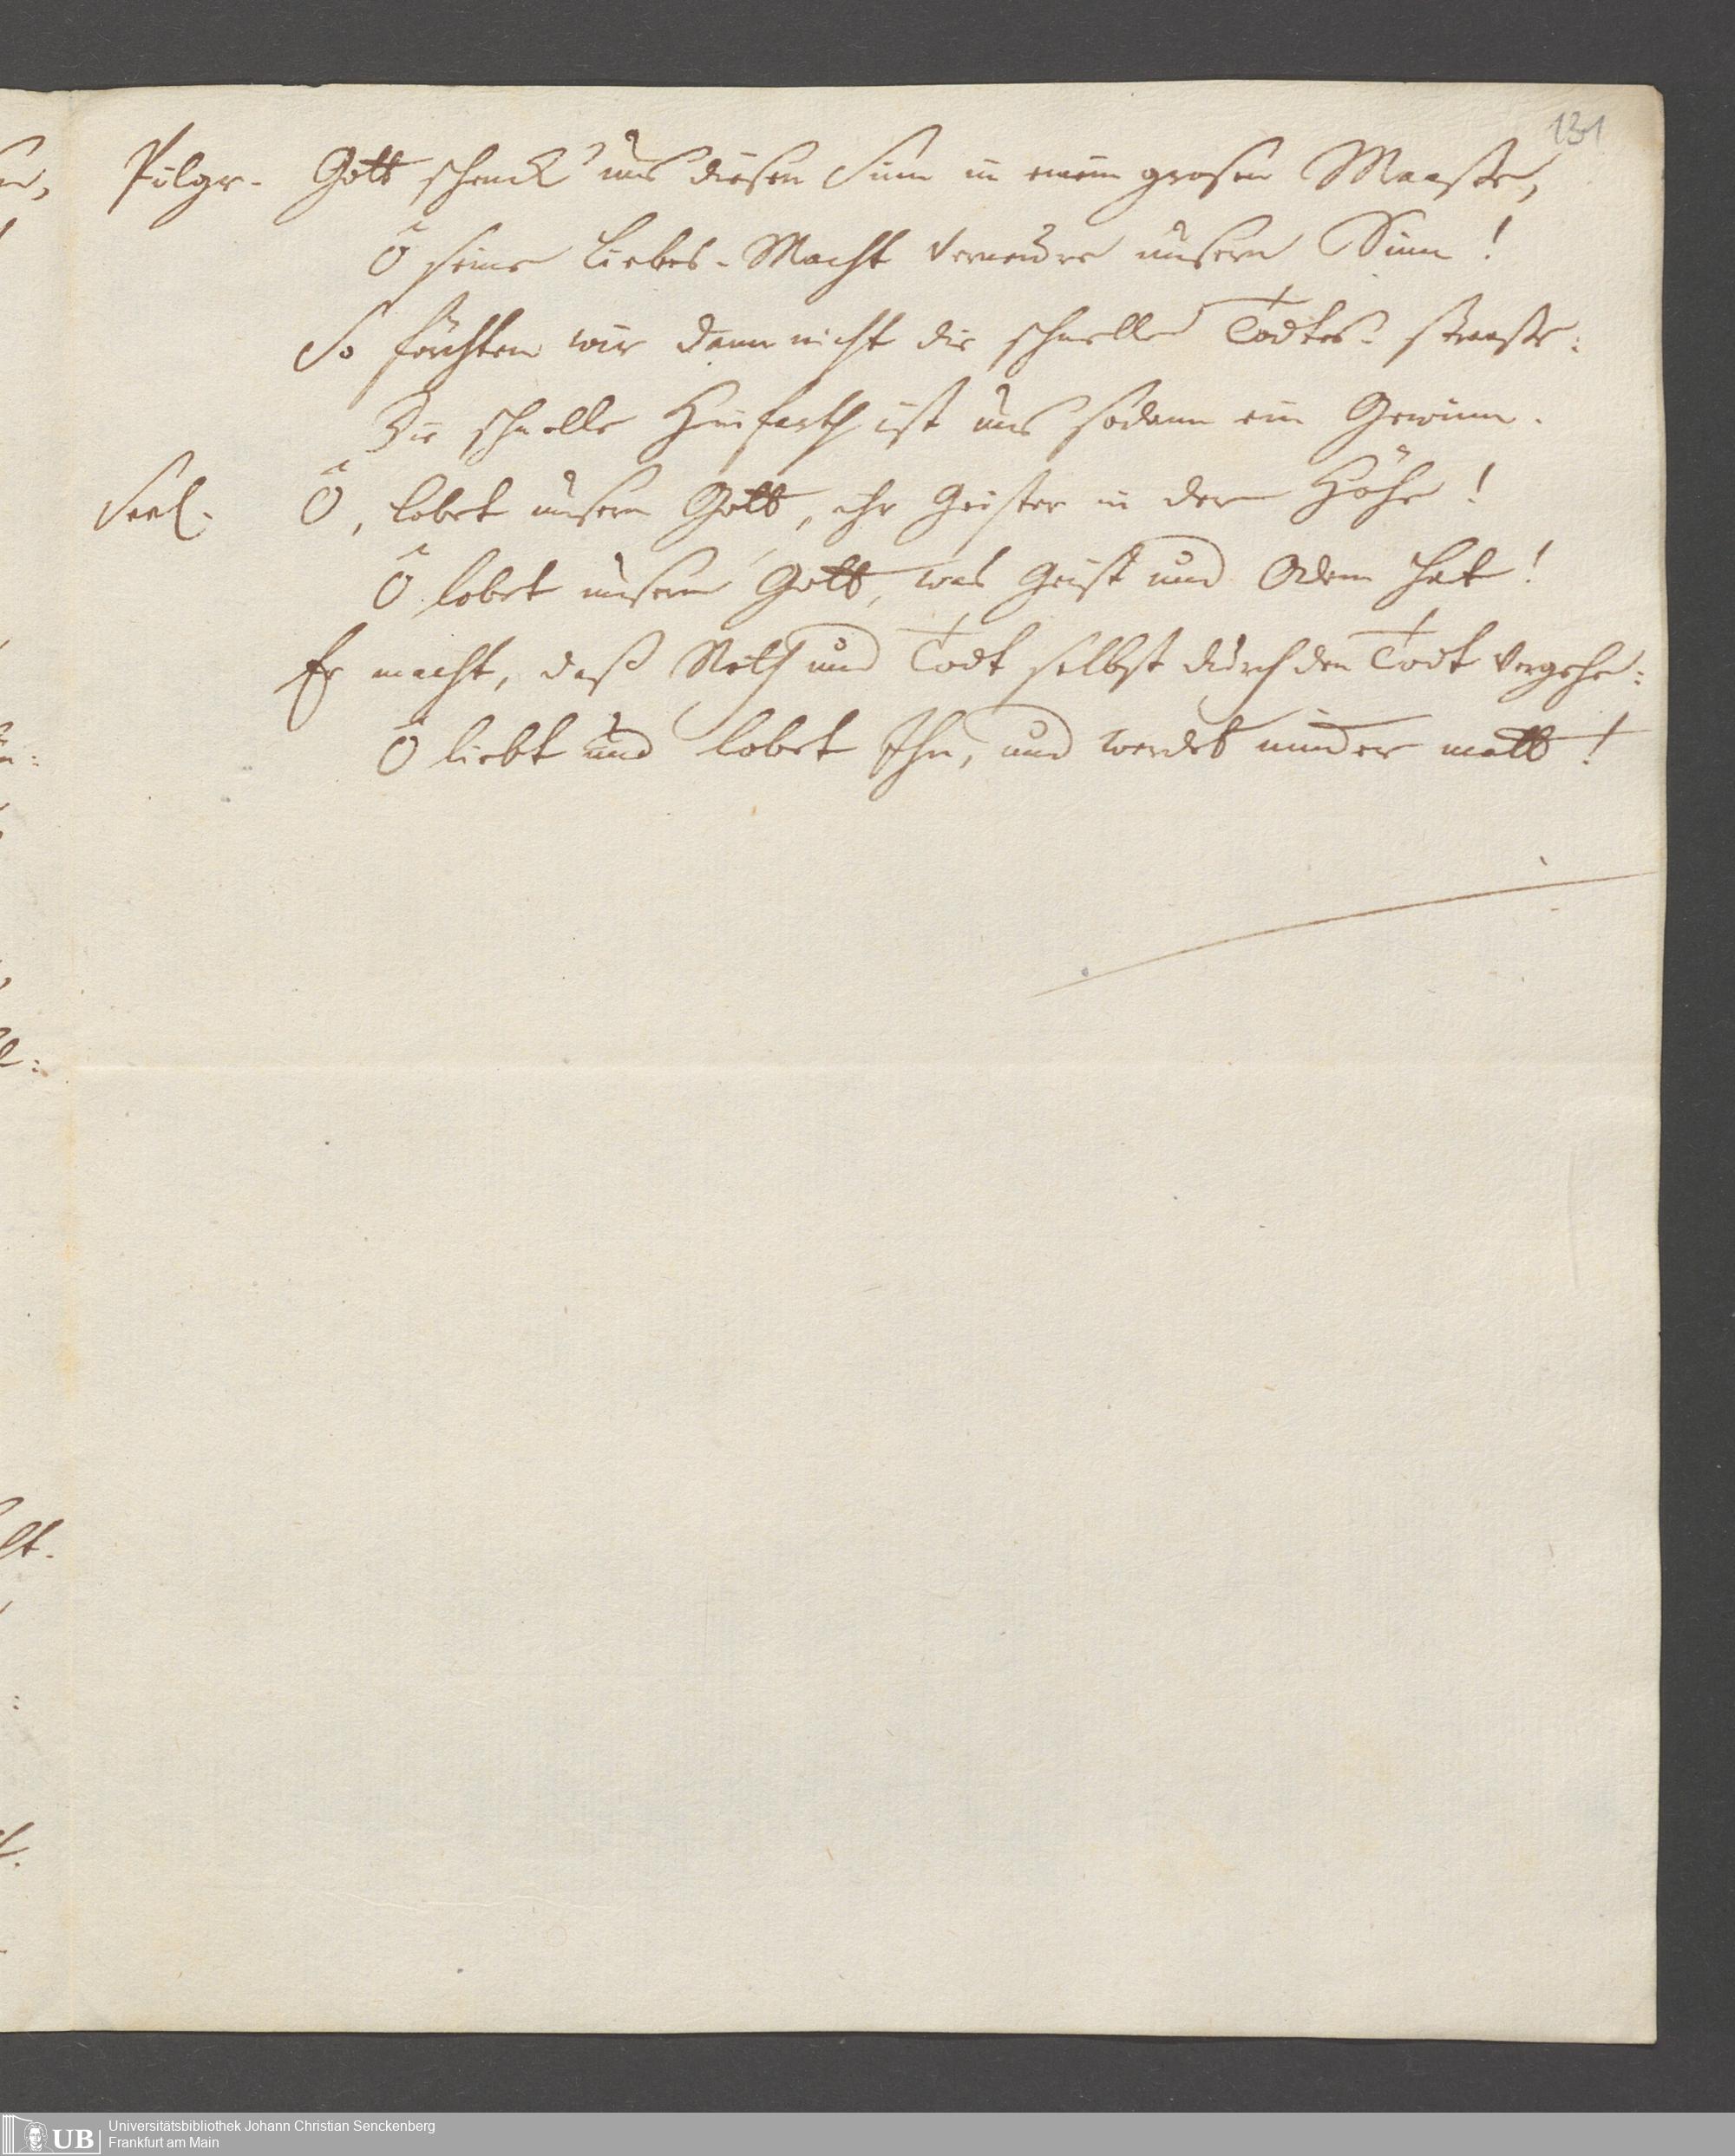 131
Pilgr. Gott schenck' uns diesen Sinn in einem grosen Maaße,
Ô seine Liebes-Macht verneure unsern Sinn!
So förchten wir dann nicht die schnelle Todtes-straße:
Die schnelle Hinfarth ist uns sodann ein Gewinn.
Seel. Ô, lobet unsern Gott, ihr Geister in der Höhe!
Ô lobet unsern Gott, was Geist und Odem hat!
Er macht, daß Noth und Todt selbst durch den Todt vergehe:
Ô liebt und lobet Ihn, und werdet nimmer matt!
UB Universitätsbibliothek Johann Christian Senckenberg
Frankfurt am Main